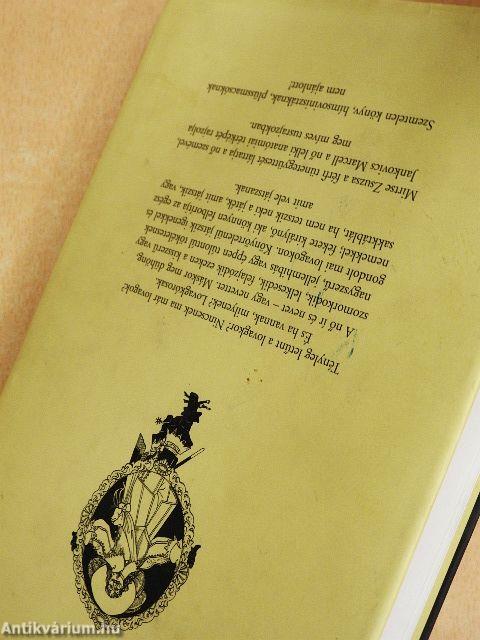 Tényleg letűnt a lovagkor? Nincsenek ma már lovagok?
És ha vannak, milyenek? Lovagkórosak.
A nő ír és nevet – vagy nevettet. Máskor meg dühöng,
szomorkodik, lelkesedik, felajzódik ezeken a kisszerű vagy
nagyszerű, jellemhibás vagy éppen túlontúl tökéletesnek
gondolt mai lovagokon. Könyörtelenül játszik igenekkel és
nemekkel: fekete királynő, aki könnyen felborítja az egész
sakktáblát, ha nem tetszik neki a játék, amit játszik, vagy
amit vele játszanak.
Mirtse Zsuzsa a férfi tünetegyüttesét láttatja a nő szemével,
Jankovics Marcell a nő lelki anatómiai térképét rajzolja
meg míves tusrajzokban.
Szemtelen könyv, hímsovinisztáknak, plüssmacsóknak
nem ajánlott!
Antikvárium.hu